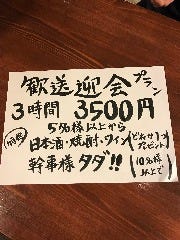 歓送迎会プラン
3時間 3500円
5名様以上から
特典 日本酒・焼酎・ワイン(どれか1つプレゼント)
幹事様タダ!!(10名様以上で)